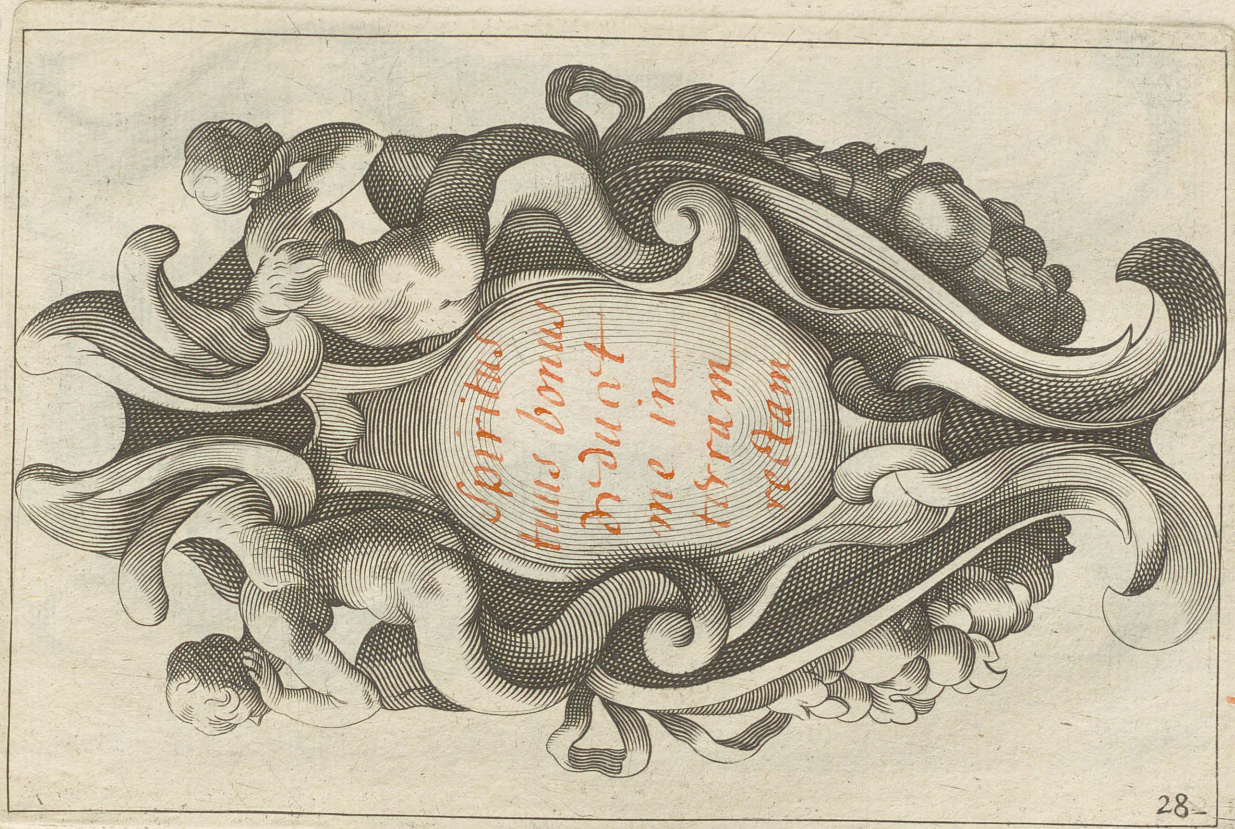 Spiritus
tuus bonus
deducet
me in
terram
rectam
28